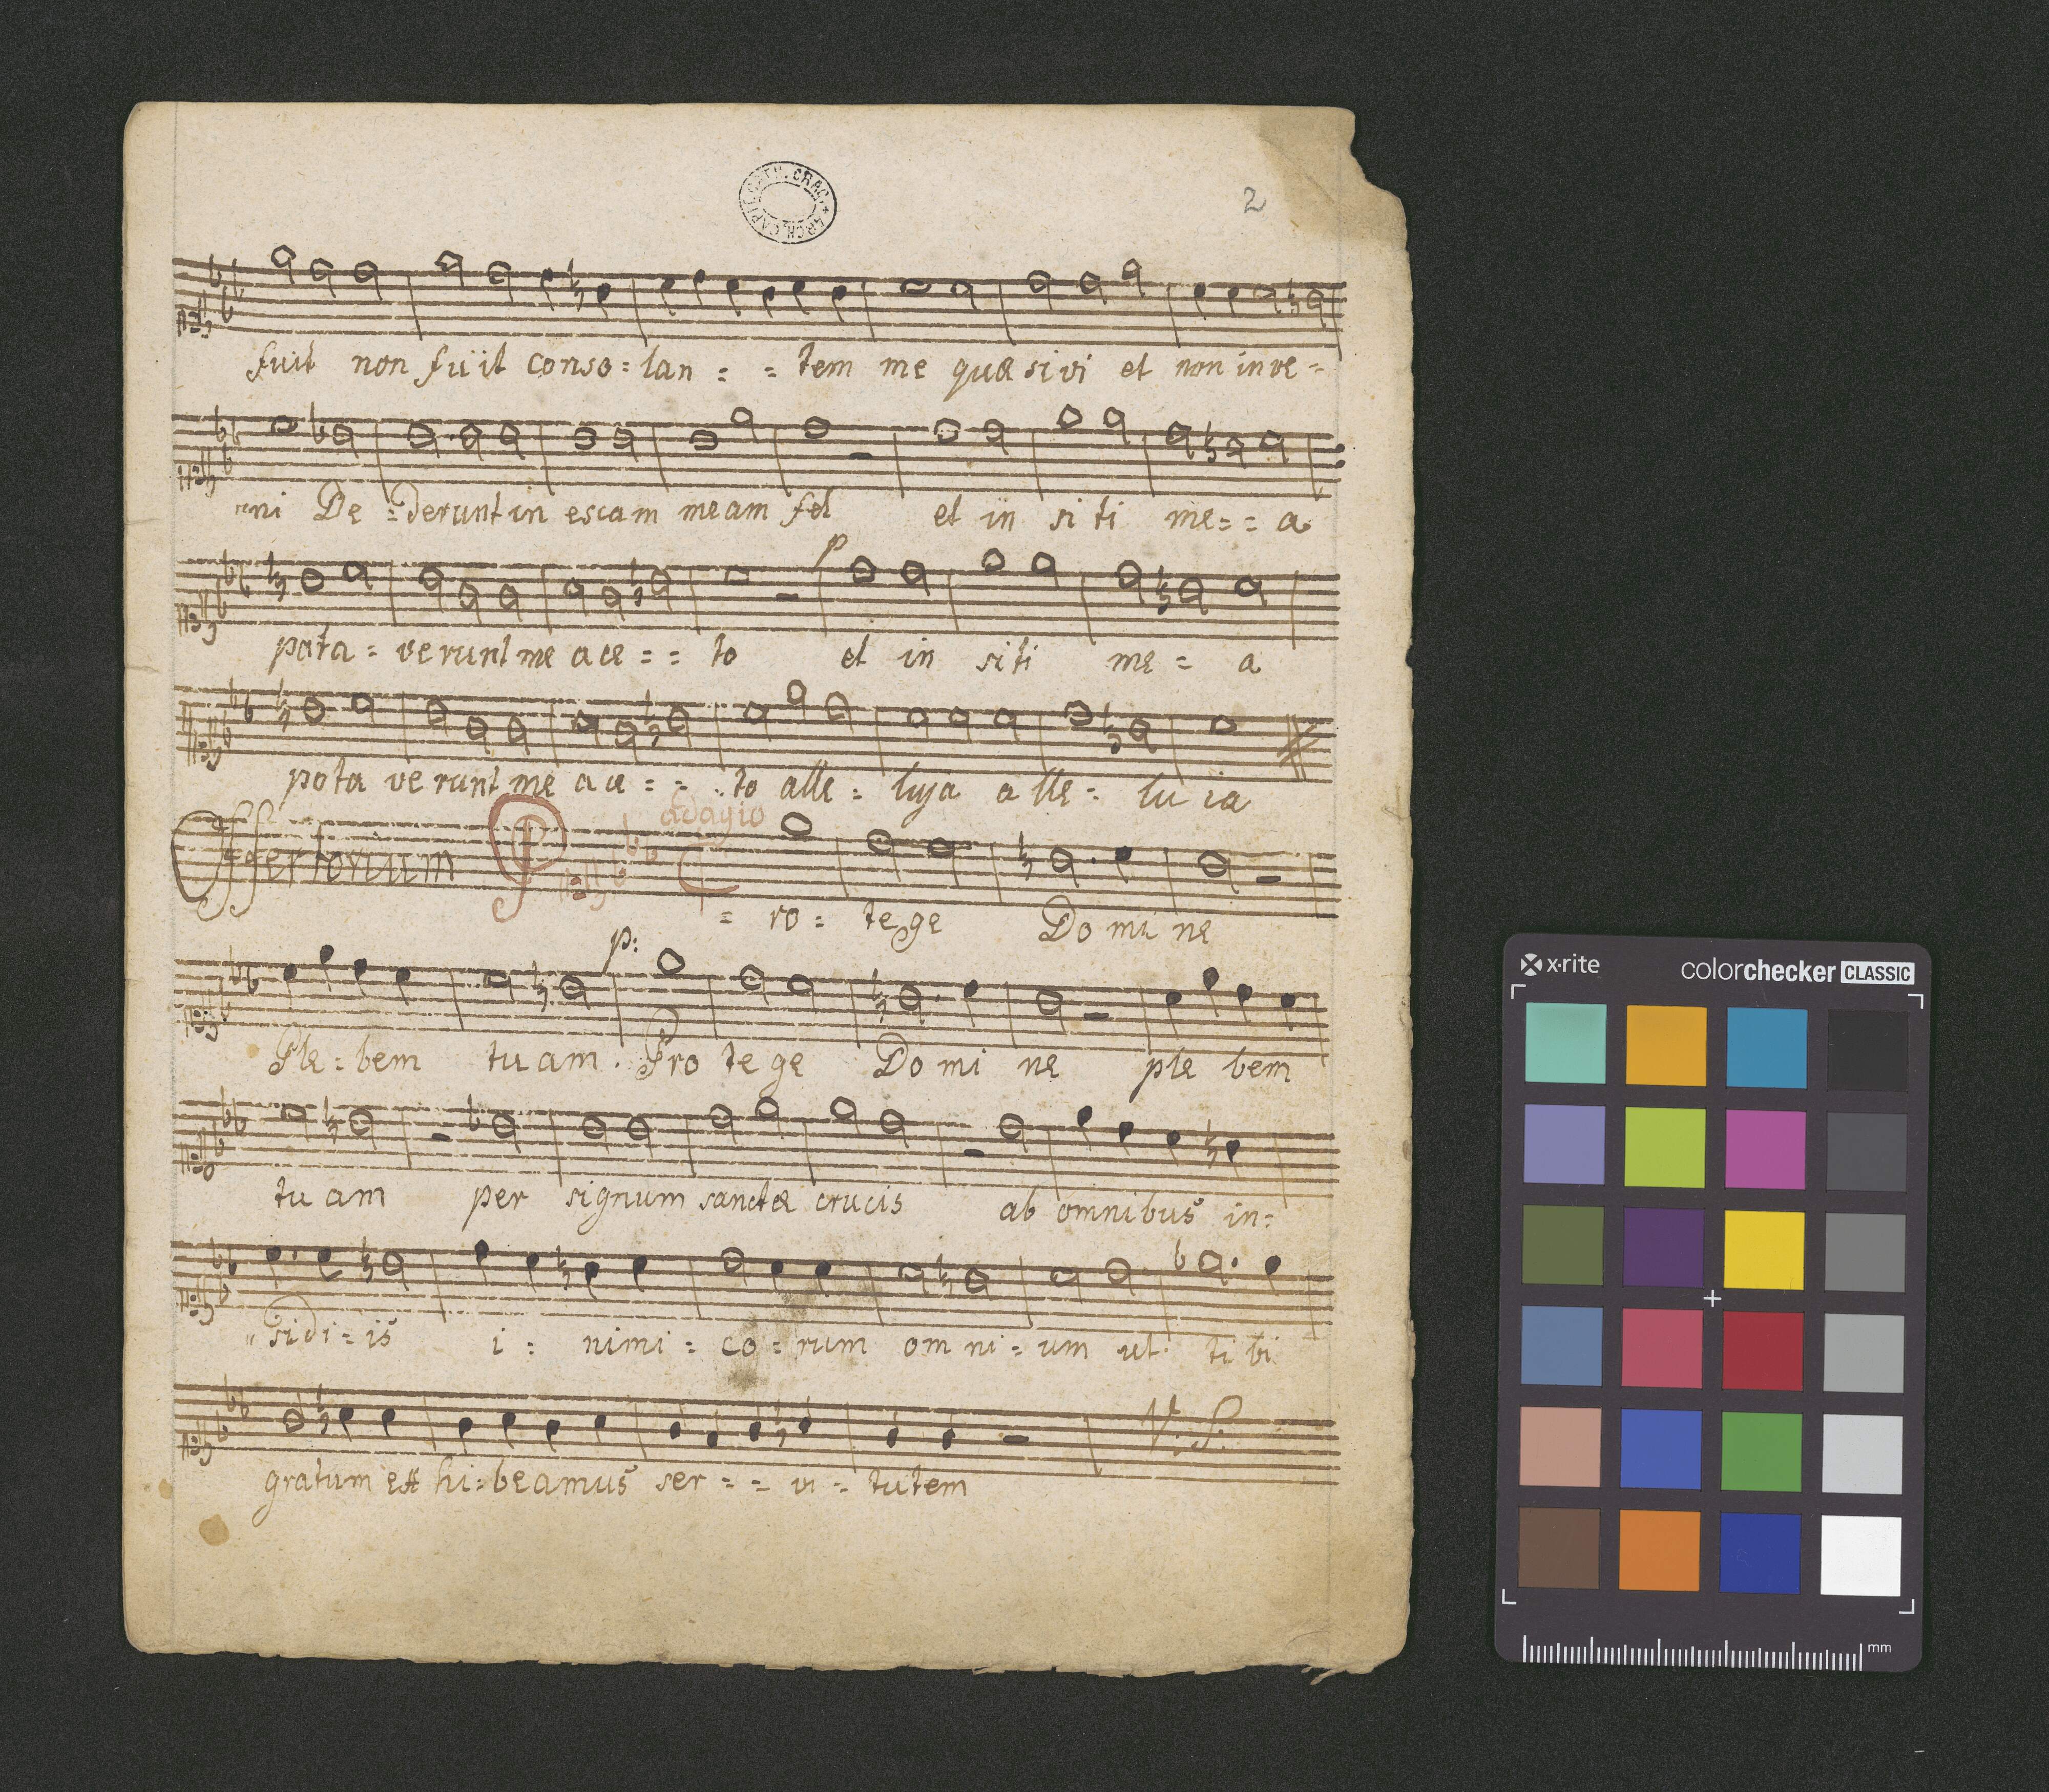 ARCH. CAPIT. CATH. CRAC.
2
fuit non fuit conso=lan = = tem me quæ sivi et non in ve=
=ni De =derunt in escam meam fel et in si ti me= = a
p
pata = verunt me ace = = to et in siti me = a
pota ve runt me ace = = to alle = luja a lle = lu ia
Offertorium P adagio
= ro = tege Do mi ne
p:
Ple = bem tu am. Pro te ge Do mi ne ple bem
tu am per signum sanctæ crucis ab omnibus in=
sidi = is i = nimi = co = rum om ni = um ut ti bi
gratum ex hi=beamus ser = = vi = tutem
V. S.
x·rite colorchecker CLASSIC
mm